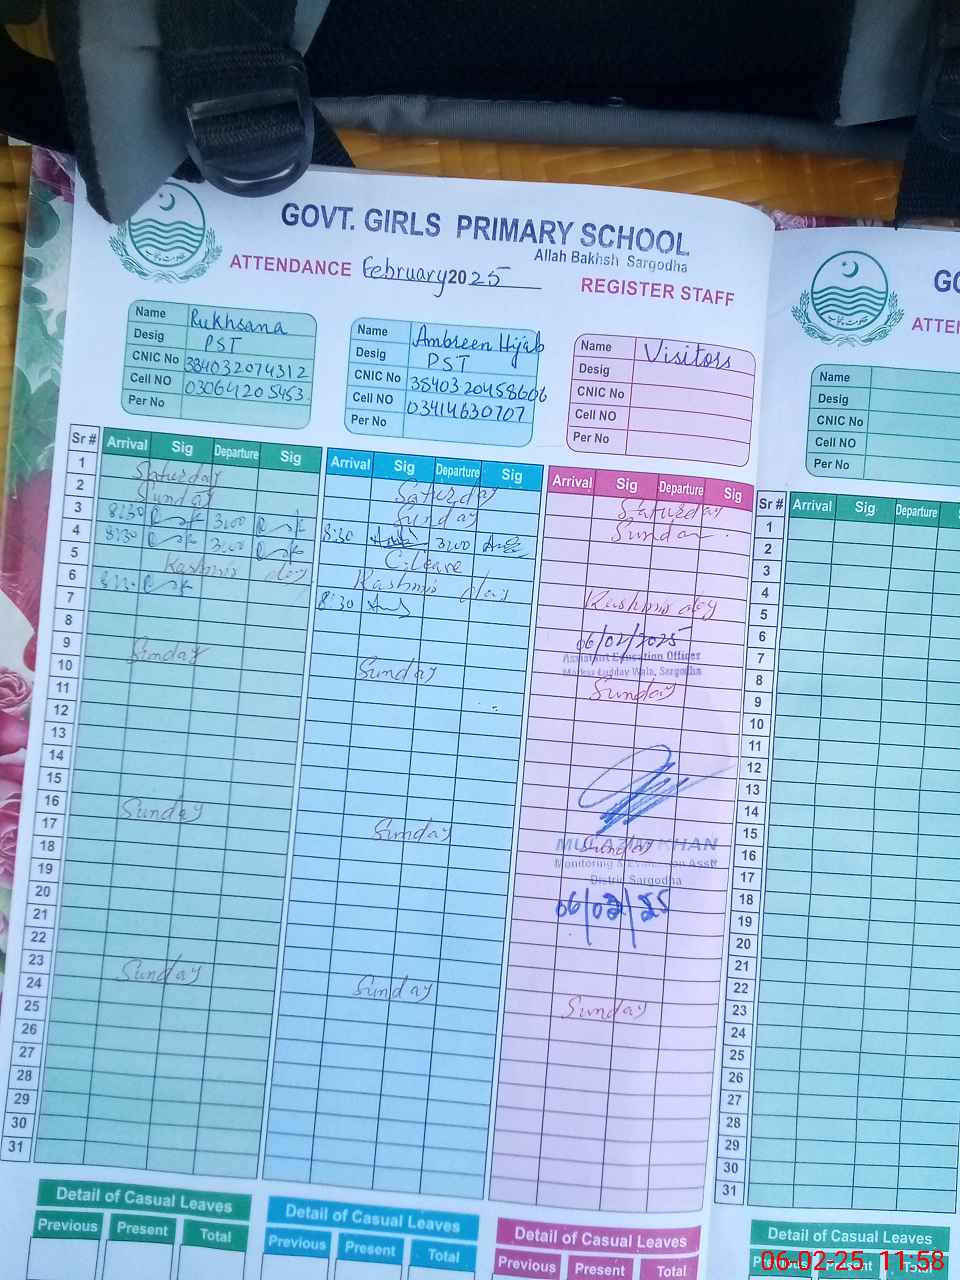 GOVT. GIRLS PRIMARY SCHOOL
Allah Bakhsh Sargodha
ATTENDANCE February 2025 REGISTER STAFF
Name Rukhsana
Desig PST
CNIC No 384032074312
Cell NO 03064205453
Per No
Name Ambreen Hijab
Desig PST
CNIC No 3840320458606
Cell NO 03414630707
Per No
Name Visitors
Desig
CNIC No
Cell NO
Per No
Sr # Arrival Sig Departure Sig Arrival Sig Departure Sig Arrival Sig Departure Sig
1 Saturday Saturday Saturday
2 Sunday Sunday Sunday
3 8:30 3:00 8:30 3:00
4 8:30 3:00 C.Leave
5 Kashmir day Kashmir day Kashmir day
6 8:30 8:30 06/02/2025
Assistant Education Officer
7
8
9 Sunday Sunday Sunday
10
11
12
13
14
15
16 Sunday Sunday Sunday
KHAN
Monitoring & Evaluation Asstt
District Sargodha
06/02/25
17
18
19
20
21
22
23 Sunday Sunday Sunday
24
25
26
27
28
29
30
31
Detail of Casual Leaves
Previous Present Total
Detail of Casual Leaves
Previous Present Total
Detail of Casual Leaves
Previous Present Total
GO
ATTE
Name
Desig
CNIC No
Cell NO
Per No
Sr # Arrival Sig Departure
1
2
3
4
5
6
7
8
9
10
11
12
13
14
15
16
17
18
19
20
21
22
23
24
25
26
27
28
29
30
31
Detail of Casual Leaves
Previous Present Total
06-02-25 11:58